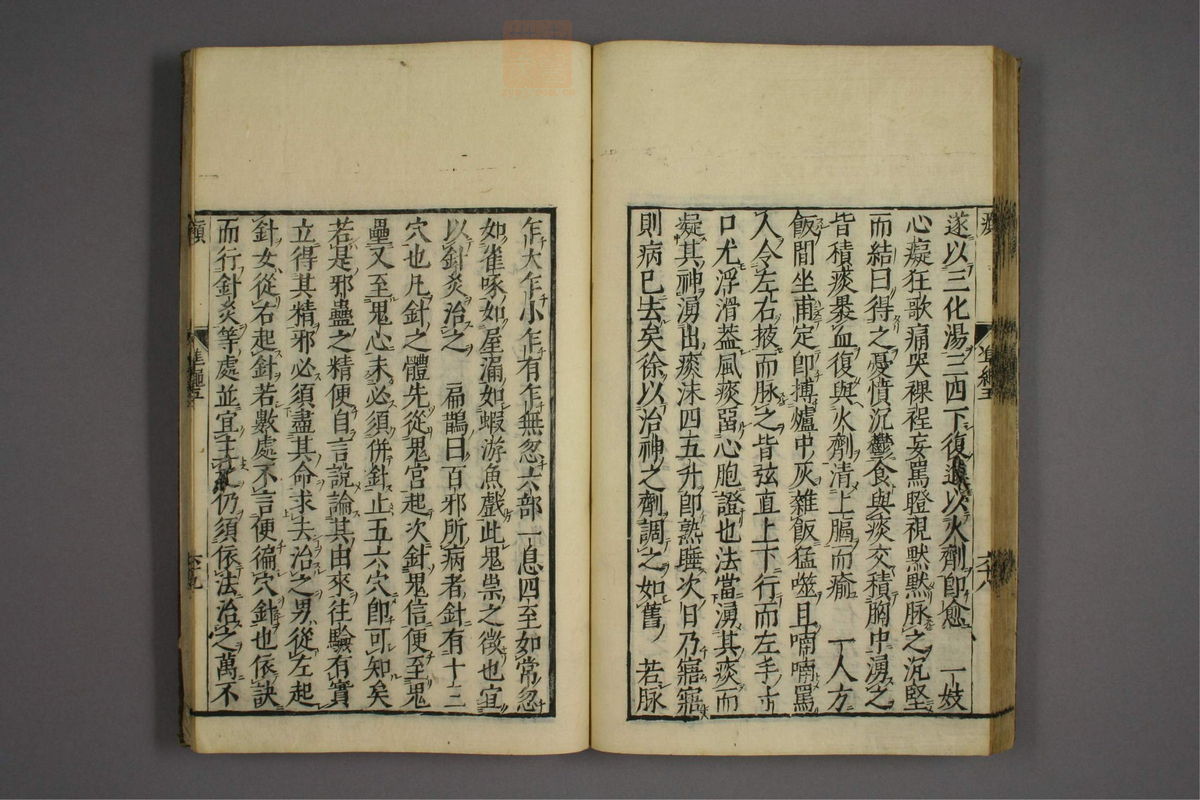 遂以三化湯三四下復進以火劑即愈　一妓
心癡狂歌痛哭裸裎妄罵瞪視默默脉之沉堅
而結曰得之憂憤沉鬱食與痰交積胸中湧之
皆積痰褁血復與火劑清上膈而瘉　一人方
飯間坐甫定即搏爐中灰雜飯猛噬且喃喃罵
入令左右掖而脉之皆弦直上下行而左手寸
口尤浮滑蓋風痰畱心胞證也法當湧其痰而
凝其神湧出痰沫四五升即熟睡次日乃寤寤
則病已去矣徐以治神之劑調之如舊　若脉
乍大乍小乍有乍無忽六部一息四至如常忽
如雀啄如屋漏如蝦游魚戲此鬼祟之徵也宜
以針灸治之　扁鵲曰百邪所病者針有十三
穴也凡針之體先從鬼宮起次針鬼信便至鬼
壘又至鬼心未必須併針止五六穴即可知矣
若是邪蠱之精便自言說論其由來往驗有實
立得其精邪必須盡其命求去治之男從左起
針女從右起針若數處不言便徧穴針也依訣
而行針灸等處並宜主之仍須依法治之萬不
癲
準繩五